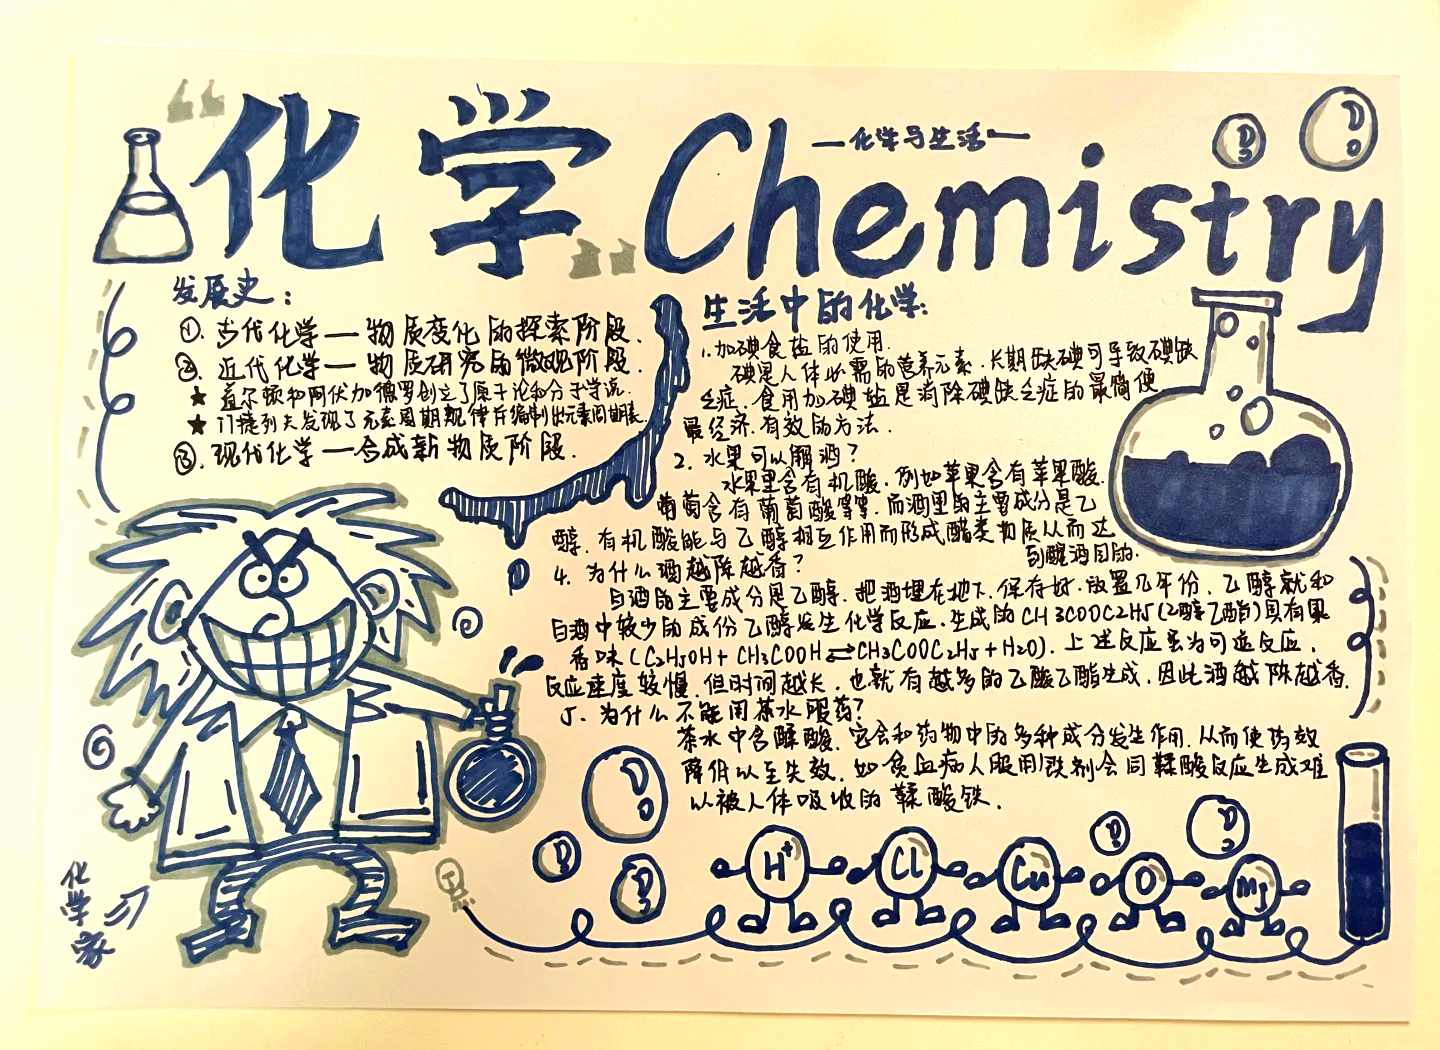 “化学”
Chemistry
—化学与生活—
发展史：
①.古代化学——物质变化的探索阶段.
②.近代化学——物质研究的微观阶段.
★ 道尔顿和阿伏加德罗创立了原子论和分子学说.
★ 门捷列夫发现了元素周期规律并编制出元素周期表.
③.现代化学——合成新物质阶段.
生活中的化学：
1.加碘食盐的使用.
碘是人体必需的营养元素.长期缺碘可导致碘缺
乏症.食用加碘盐是消除碘缺乏症的最简便
最经济.有效的方法.
2.水果可以解酒?
水果里含有机酸.例如苹果含有苹果酸.
葡萄含有葡萄酸等等.而酒里的主要成分是乙
醇.有机酸能与乙醇相互作用而形成酯类物质从而达
到醒酒目的.
4.为什么酒越陈越香?
白酒的主要成分是乙醇.把酒埋在地下.保存好.放置几年份.乙醇就和
白酒中较少的成份乙醇发生化学反应.生成的CH3COOC2H5(乙醇乙酯)具有果
香味(C2H5OH+CH3COOH⇌CH3COOC2H5+H2O).上述反应虽为可逆反应.
反应速度较慢.但时间越长.也就有越多的乙酸乙酯生成.因此酒越陈越香.
5.为什么不能用茶水服药?
茶水中含鞣酸.它会和药物中的多种成分发生作用.从而使药效
降低以至失效.如贫血病人服用铁剂会同鞣酸反应生成难
以被人体吸收的鞣酸铁.
化学家
H+
Cl
Cu
O
Mg